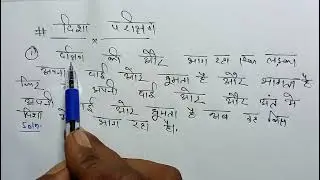 # दिशा परीक्षण
① दक्षिण की और भाग रहा एक लड़का
अपनी दाई ओर घुमता है और भागता है
फिर अपनी दाई ओर और अंत मे
अपनी दाई ओर घुमता है अब वह किस
दिशा मे भाग रहा है।
Soln: